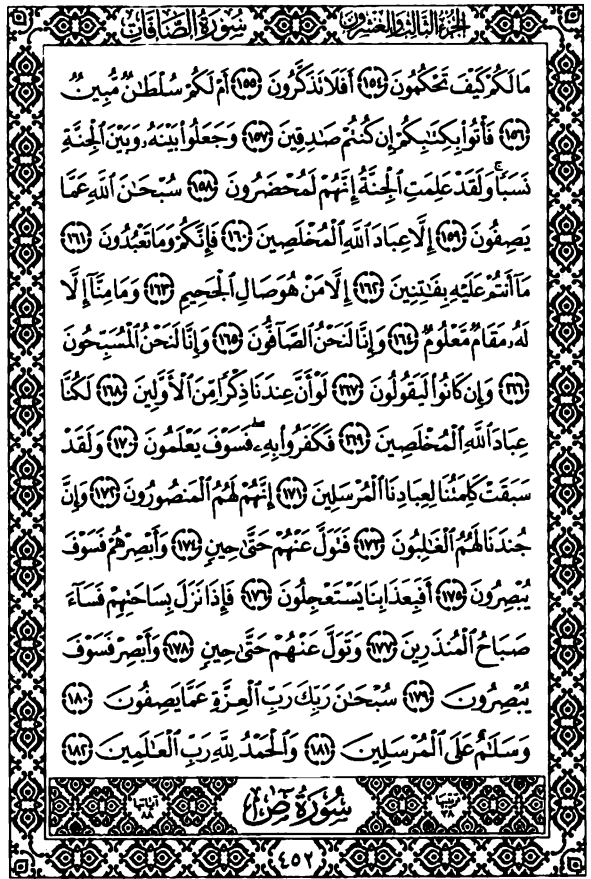 سُورَةُ الصَّافَّاتِ
الجُزْءُ الثَّالِثُ وَالعِشْرُونَ
مَا لَكُمْ كَيْفَ تَحْكُمُونَ ﴿١٥٤﴾ أَفَلَا تَذَكَّرُونَ ﴿١٥٥﴾ أَمْ لَكُمْ سُلْطَانٌ مُّبِينٌ
﴿١٥٦﴾ فَأْتُوا بِكِتَابِكُمْ إِن كُنتُمْ صَادِقِينَ ﴿١٥٧﴾ وَجَعَلُوا بَيْنَهُ وَبَيْنَ الْجِنَّةِ
نَسَبًا ۚ وَلَقَدْ عَلِمَتِ الْجِنَّةُ إِنَّهُمْ لَمُحْضَرُونَ ﴿١٥٨﴾ سُبْحَانَ اللَّهِ عَمَّا
يَصِفُونَ ﴿١٥٩﴾ إِلَّا عِبَادَ اللَّهِ الْمُخْلَصِينَ ﴿١٦٠﴾ فَإِنَّكُمْ وَمَا تَعْبُدُونَ ﴿١٦١﴾
مَا أَنتُمْ عَلَيْهِ بِفَاتِنِينَ ﴿١٦٢﴾ إِلَّا مَنْ هُوَ صَالِ الْجَحِيمِ ﴿١٦٣﴾ وَمَا مِنَّا إِلَّا
لَهُ مَقَامٌ مَّعْلُومٌ ﴿١٦٤﴾ وَإِنَّا لَنَحْنُ الصَّافُّونَ ﴿١٦٥﴾ وَإِنَّا لَنَحْنُ الْمُسَبِّحُونَ
﴿١٦٦﴾ وَإِن كَانُوا لَيَقُولُونَ ﴿١٦٧﴾ لَوْ أَنَّ عِندَنَا ذِكْرًا مِّنَ الْأَوَّلِينَ ﴿١٦٨﴾ لَكُنَّا
عِبَادَ اللَّهِ الْمُخْلَصِينَ ﴿١٦٩﴾ فَكَفَرُوا بِهِ ۖ فَسَوْفَ يَعْلَمُونَ ﴿١٧٠﴾ وَلَقَدْ
سَبَقَتْ كَلِمَتُنَا لِعِبَادِنَا الْمُرْسَلِينَ ﴿١٧١﴾ إِنَّهُمْ لَهُمُ الْمَنصُورُونَ ﴿١٧٢﴾ وَإِنَّ
جُندَنَا لَهُمُ الْغَالِبُونَ ﴿١٧٣﴾ فَتَوَلَّ عَنْهُمْ حَتَّىٰ حِينٍ ﴿١٧٤﴾ وَأَبْصِرْهُمْ فَسَوْفَ
يُبْصِرُونَ ﴿١٧٥﴾ أَفَبِعَذَابِنَا يَسْتَعْجِلُونَ ﴿١٧٦﴾ فَإِذَا نَزَلَ بِسَاحَتِهِمْ فَسَاءَ
صَبَاحُ الْمُنذَرِينَ ﴿١٧٧﴾ وَتَوَلَّ عَنْهُمْ حَتَّىٰ حِينٍ ﴿١٧٨﴾ وَأَبْصِرْ فَسَوْفَ
يُبْصِرُونَ ﴿١٧٩﴾ سُبْحَانَ رَبِّكَ رَبِّ الْعِزَّةِ عَمَّا يَصِفُونَ ﴿١٨٠﴾
وَسَلَامٌ عَلَى الْمُرْسَلِينَ ﴿١٨١﴾ وَالْحَمْدُ لِلَّهِ رَبِّ الْعَالَمِينَ ﴿١٨٢﴾
ترتيبها ٣٨
سُورَةُ صٓ
آياتها ٨٨
٤٥٢